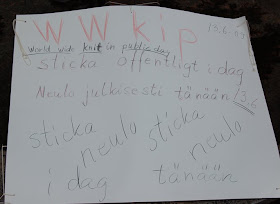 W W k i p 13.6.09
World wide knit in public day
sticka offentligt i dag
Neulo julkisesti tänään 13.6
sticka neulo sticka neulo
i dag tänään